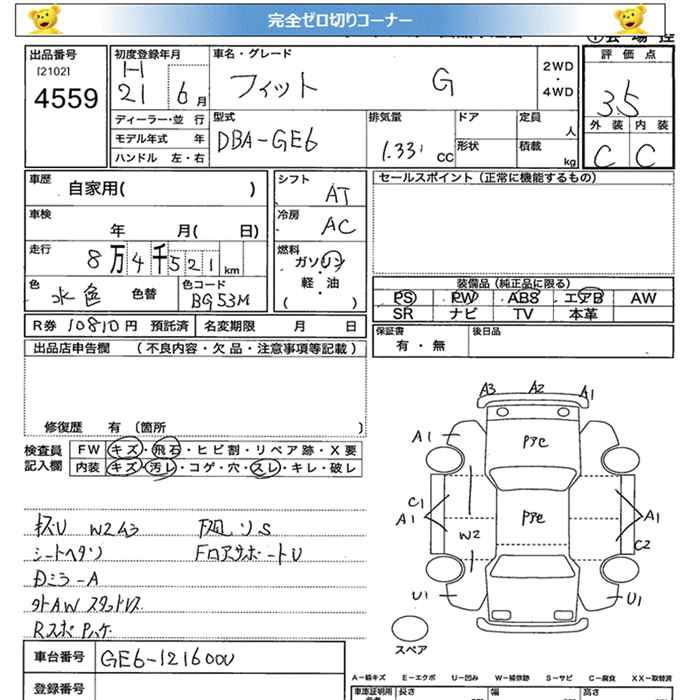 完全ゼロ切りコーナー
出品番号
[2102]
4559
初度登録年月
H
21 6月
ディーラー・並 行
モデル年式 年
ハンドル 左・右
車名・グレード
フィット G
2WD
・
4WD
型式
DBA-GE6
排気量
1.33 CC
ドア
形状
定員
人
積載
kg
評 価 点
3.5
外 装 内 装
C C
車歴
自家用( )
車検
年 月( 日)
走行
8万4千521km
色
水色 色替
色コード
BG53M
シフト
AT
冷房
AC
燃料
ガソリン
・
軽・油
( )
セールスポイント(正常に機能するもの)
装備品(純正品に限る)
PS PW ABS エアB AW
SR ナビ TV 本革
R券 10810円 預託済 名変期限 月 日
保証書
有・無
後日品
出品店申告欄 (不良内容・欠品・注意事項等記載)
修復歴 有 〔箇所 〕
検査員
記入欄
FW キズ・飛石・ヒビ割・リペア跡・X要
内装 キズ・汚レ・コゲ・穴・スレ・キレ・破レ
A3 A2 A1
A1
C1
A1
W2
A1
C2
U1 U1
スペア
シートヘタリ
Dミラ-A
外AWスタッドレス
車台番号 GE6-1216000
登録番号
A-線キズ E-エクボ U-凹み W-補修跡 S-サビ C-腐食 XX-取替済
車庫証明用
長さ 幅 高さ